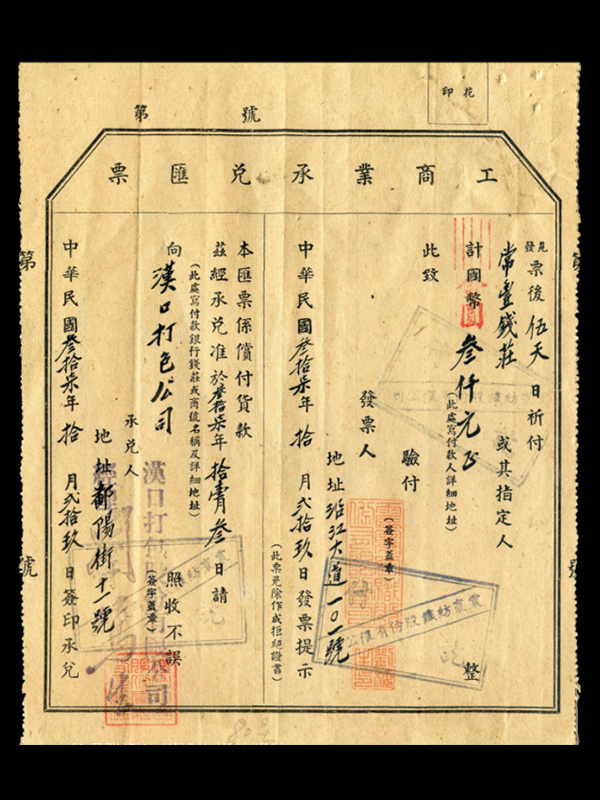 印花
第 號
工商業承兌匯票
見發票後伍天日祈付
常豐錢莊 或其指定人
計國幣 叁仟元正 整
(此處寫付款人詳細地址)
此致 驗付
發票人 (簽字蓋章)
地址 沿江大道一〇一號
中華民國叁拾柒年 拾 月弍拾玖日發票提示
(此票免除作成拒絕證書)
本匯票係償付貨款
茲經承兌准於叁拾柒年拾壹月叁日請
(此處寫付款銀行錢莊或商號名稱及詳細地址)
向 漢口打包公司 照收不誤
承兌人 (簽字蓋章)
漢口打包
公司
地址 鄱陽街十一號
中華民國叁拾柒年 拾 月弍拾玖日簽印承兌
第 號
第
震寰紡織股份有限公司